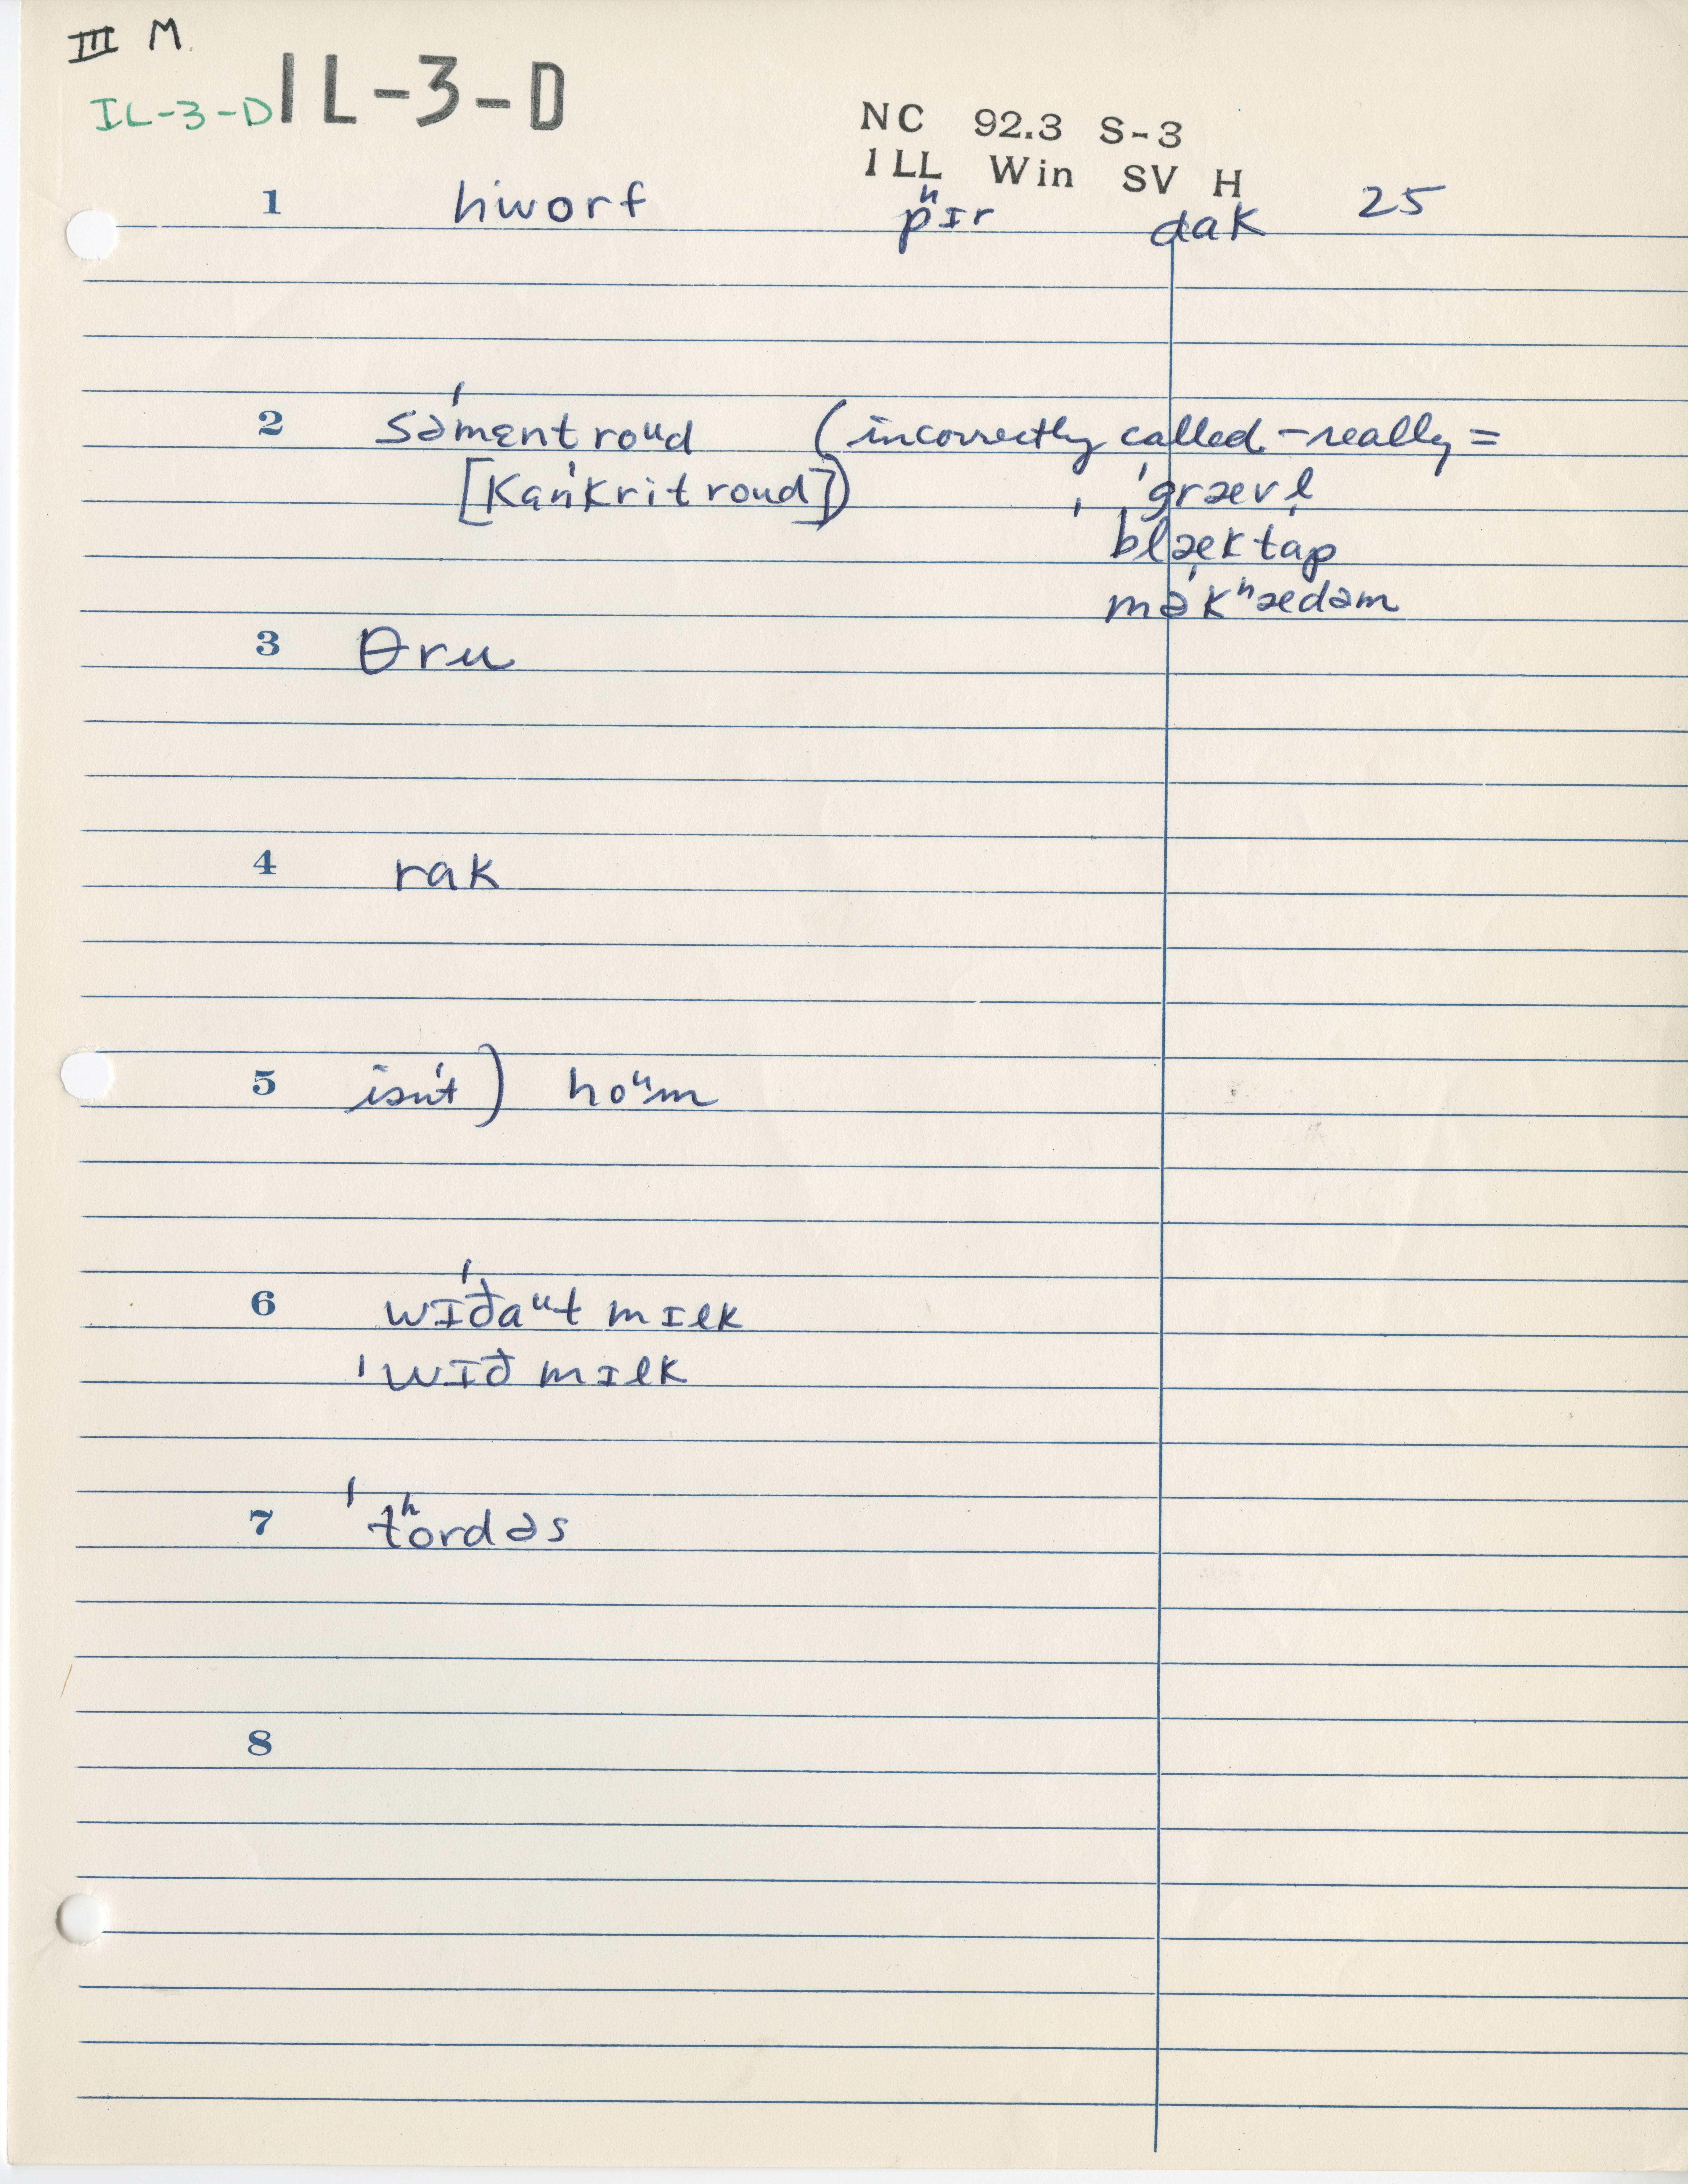 III M.
IL-3-D IL-3-D
NC 92.3 S-3
ILL Win SV H
1 hworf pʰɪr dak 25
2 səˈmɛnt roᵘd (incorrectly called - really =
[ˈkaŋkrit roud]) ˈgrævl̩
ˈblæk tap
məˈkʰædəm
3 θru
4 rak
5 isn't) hoᵘm
6 wɪˈðaᵘt mɪlk
ˈwɪð mɪlk
7 ˈtʰordəs
8